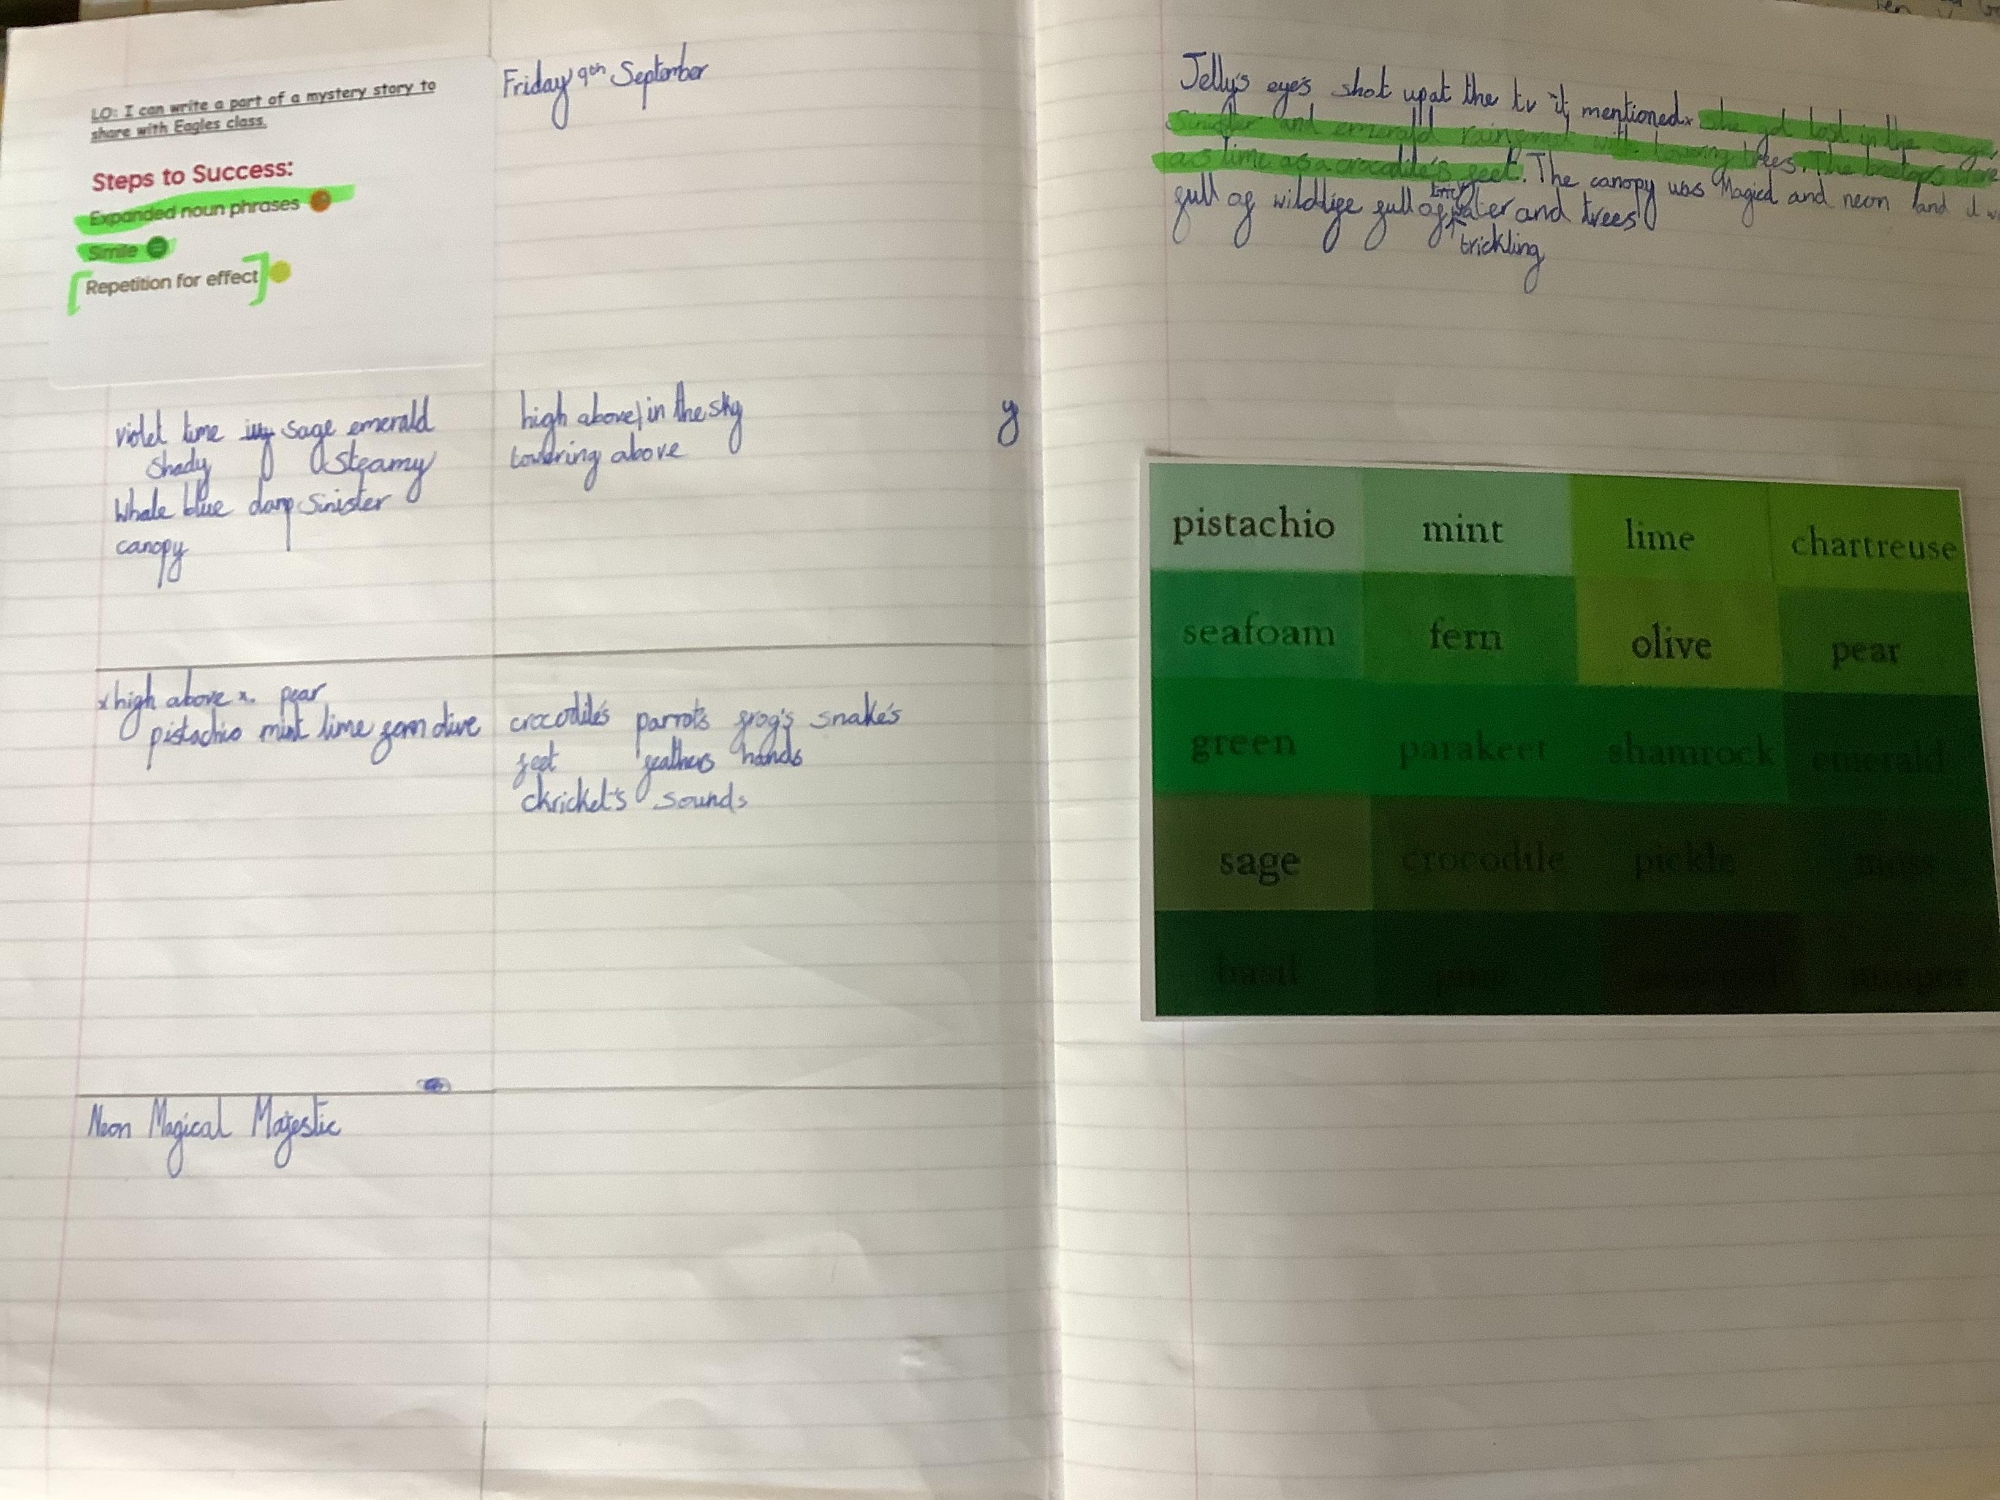 LO: I can write a part of a mystery story to
share with Eagles class.
Steps to Success:
Expanded noun phrases
Simile
Repetition for effect
Friday 9th September
violet lime sage emerald
shady steamy
Whale blue damp sinister
canopy
high above in the sky
towering above
y
high above pear
pistachio mint lime fern olive
crocodile's parrots frog's snake's
feet feathers hands
ckricket's sounds
Neon Magical Majestic
Jelly's eye's shot up at the tv it mentioned she got lost in the
sinister and emerald rainforest with towering trees. The treetops were
as lime as a crocodile's feet. The canopy was Magical and neon and it
full of wildlife full of water and trees
trickling
pistachio mint lime chartreuse
seafoam fern olive pear
green parakeet shamrock emerald
sage crocodile pickle moss
basil